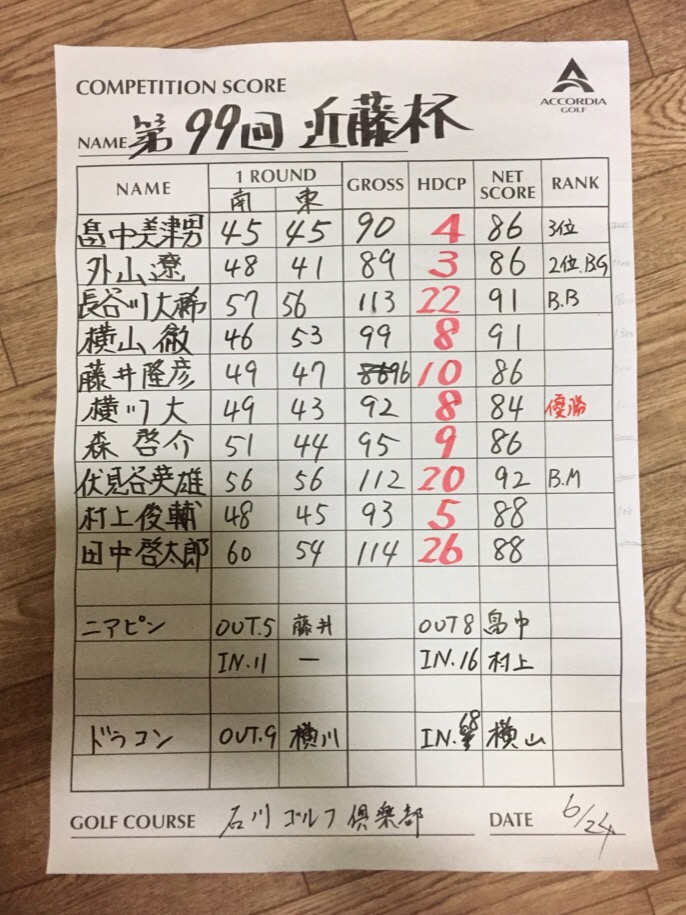 COMPETITION SCORE
ACCORDIA
GOLF
NAME 第99回 近藤杯
NAME 1 ROUND GROSS HDCP NET SCORE RANK
南 東
畠中美津男 45 45 90 4 86 3位
外山遼 48 41 89 3 86 2位.BG
長谷川大稀 57 56 113 22 91 B.B
横山徹 46 53 99 8 91
藤井隆彦 49 47 96 10 86
横川大 49 43 92 8 84 優勝
森啓介 51 44 95 9 86
伏見谷英雄 56 56 112 20 92 B.M
村上俊輔 48 45 93 5 88
田中啓太郎 60 54 114 26 88
ニアピン OUT.5 藤井 OUT8 畠中
IN.11 ー IN.16 村上
ドラコン OUT.9 横川 IN.18 横山
GOLF COURSE 石川ゴルフ倶楽部 DATE 6/24